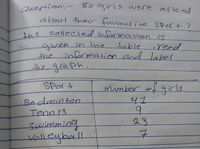 Question:- 80 girls were asked
about their favourite sport?
the collected information is
given in the table read
the information and label
the graph.
Sport Number of girls
Badminton 41
Tennis 9
Swimming 23
Volleyball 7